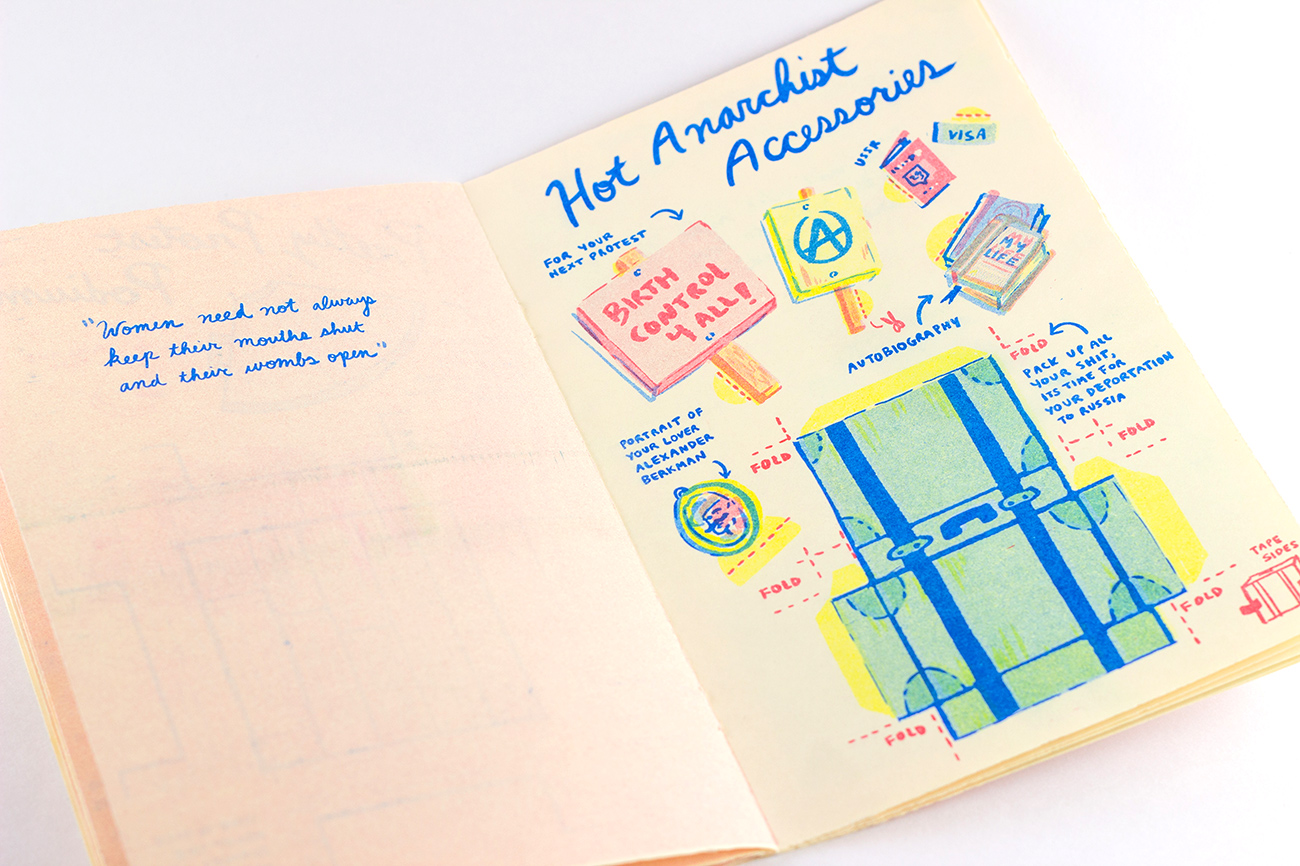 "Women need not always
keep their mouths shut
and their wombs open"
Hot Anarchist
Accessories
FOR YOUR
NEXT PROTEST
BIRTH
CONTROL
4 ALL!
A
USSR
VISA
MY
LIFE
AUTOBIOGRAPHY
FOLD
PACK UP ALL
YOUR SHIT,
ITS TIME FOR
YOUR DEPORTATION
TO RUSSIA
PORTRAIT OF
YOUR LOVER
ALEXANDER
BERKMAN
FOLD
FOLD
FOLD
FOLD
TAPE
SIDES
FOLD